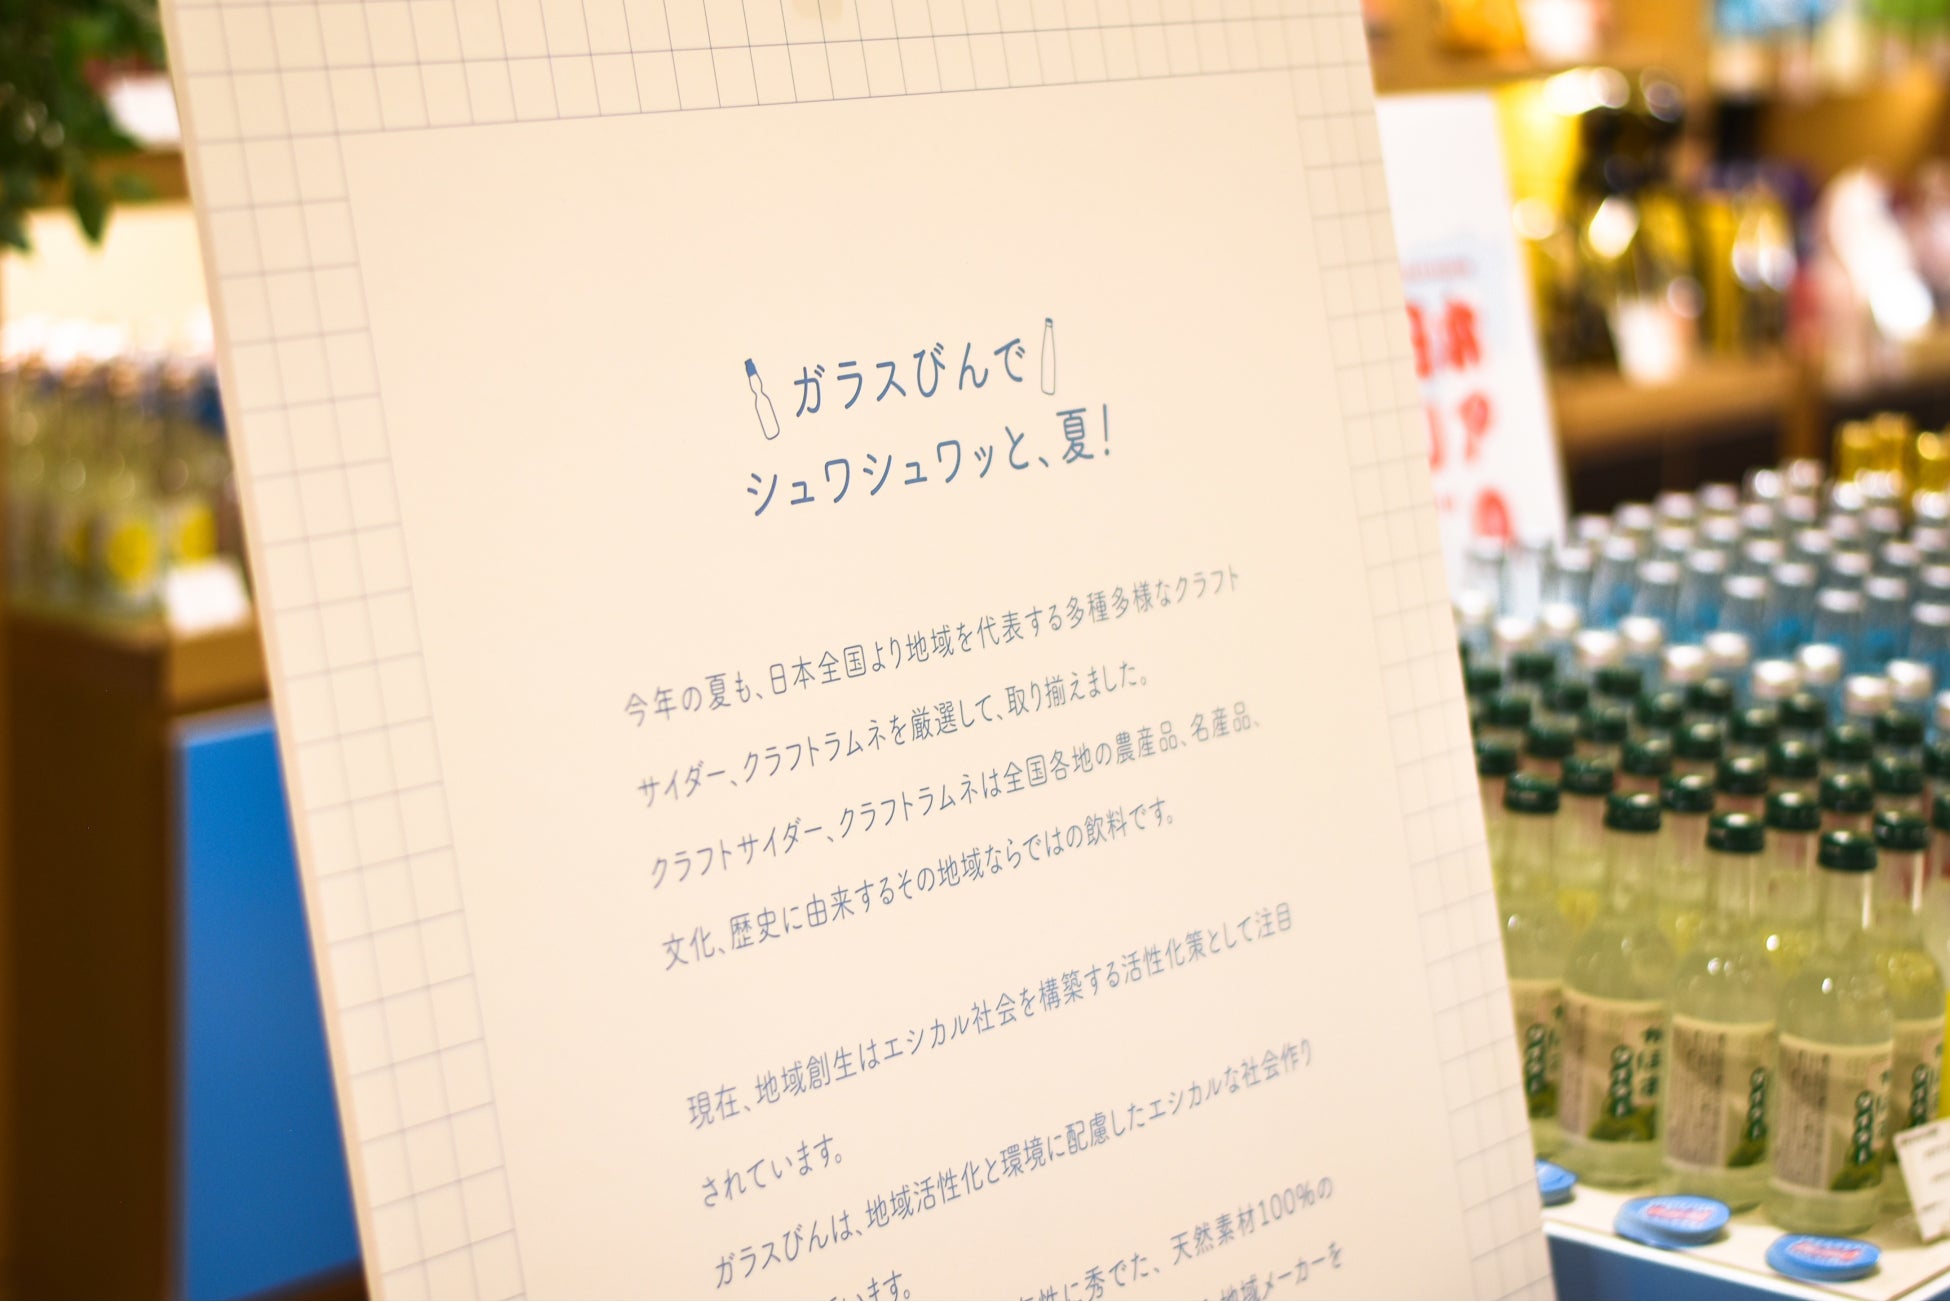 ガラスびんで
シュワシュワッと、夏!
今年の夏も、日本全国より地域を代表する多種多様なクラフト
サイダー、クラフトラムネを厳選して、取り揃えました。
クラフトサイダー、クラフトラムネは全国各地の農産品、名産品、
文化、歴史に由来するその地域ならではの飲料です。
現在、地域創生はエシカル社会を構築する活性化策として注目
されています。
ガラスびんは、地域活性化と環境に配慮したエシカルな社会作り
います。
性に秀でた、天然素材100%の
地域メーカーを